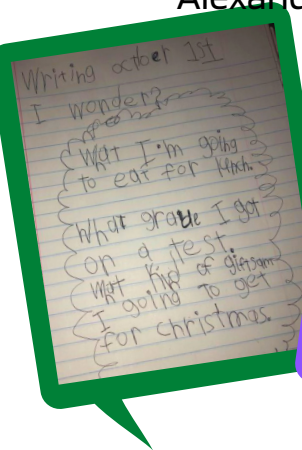 Alexand
Writing octoer 1st
I wonder?
What I'm going
to eat for lunch.
What grade I got
on a test.
What kind of gifts am
I going to get
for christmas.